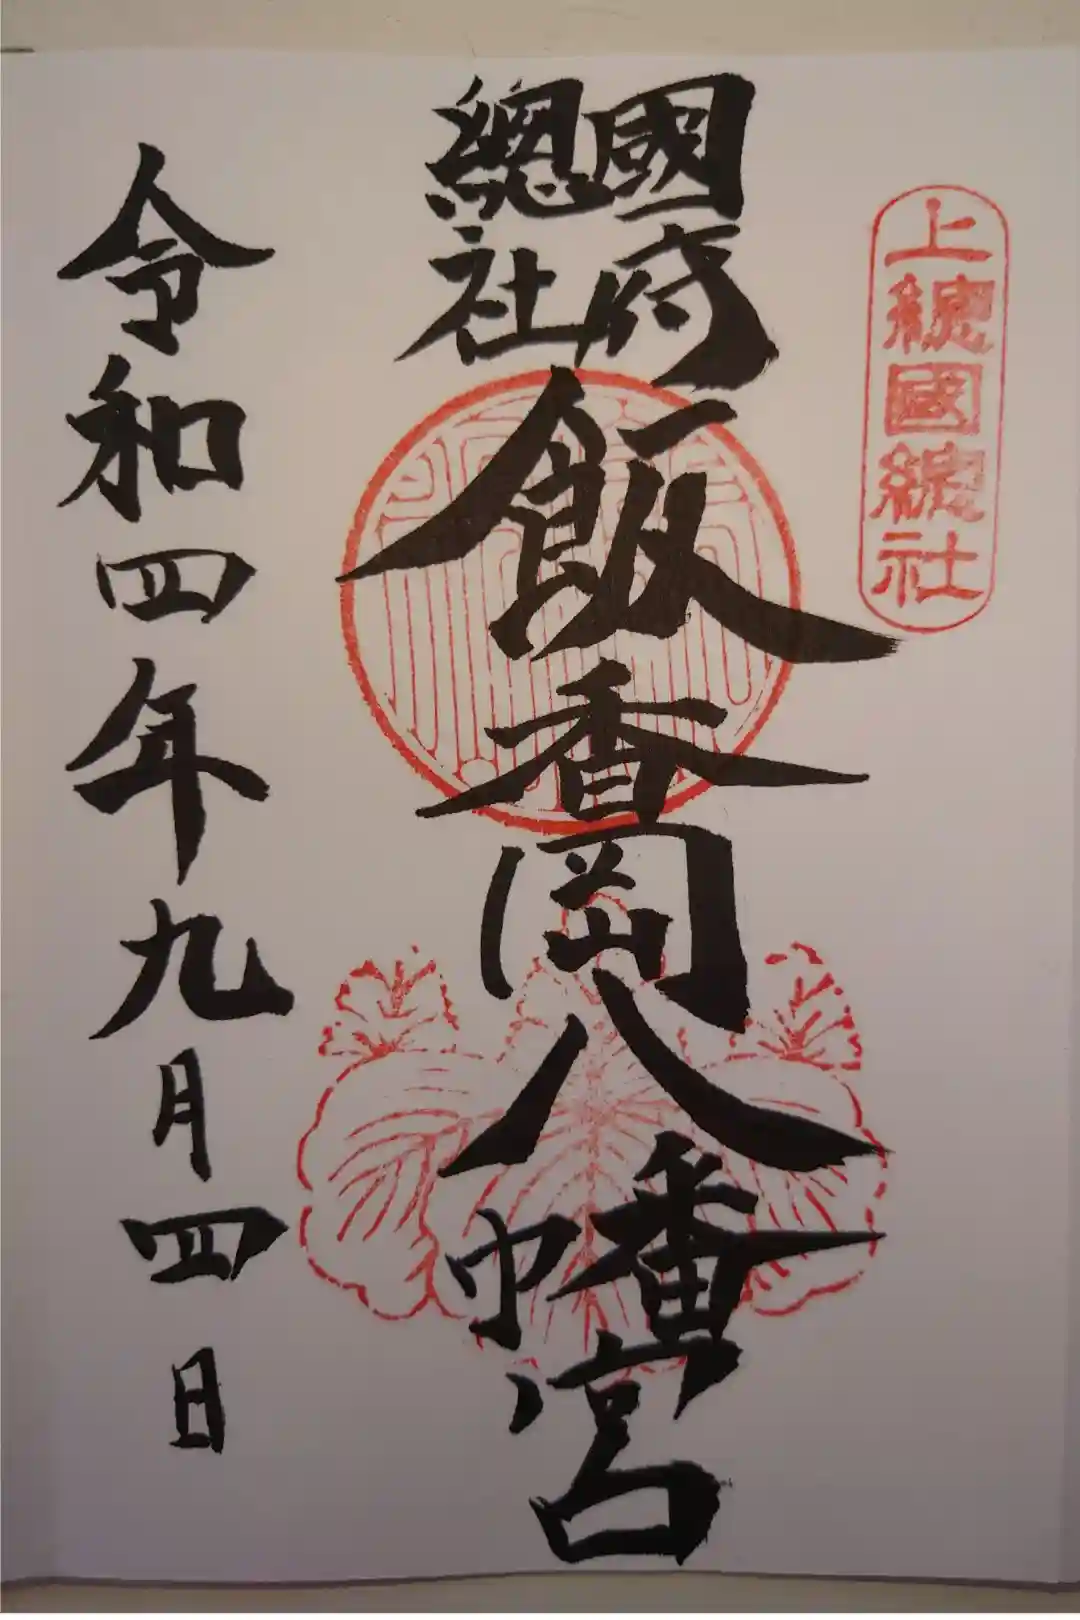 上總國總社
國府
總社
飯香岡八幡宮
令和四年九月四日